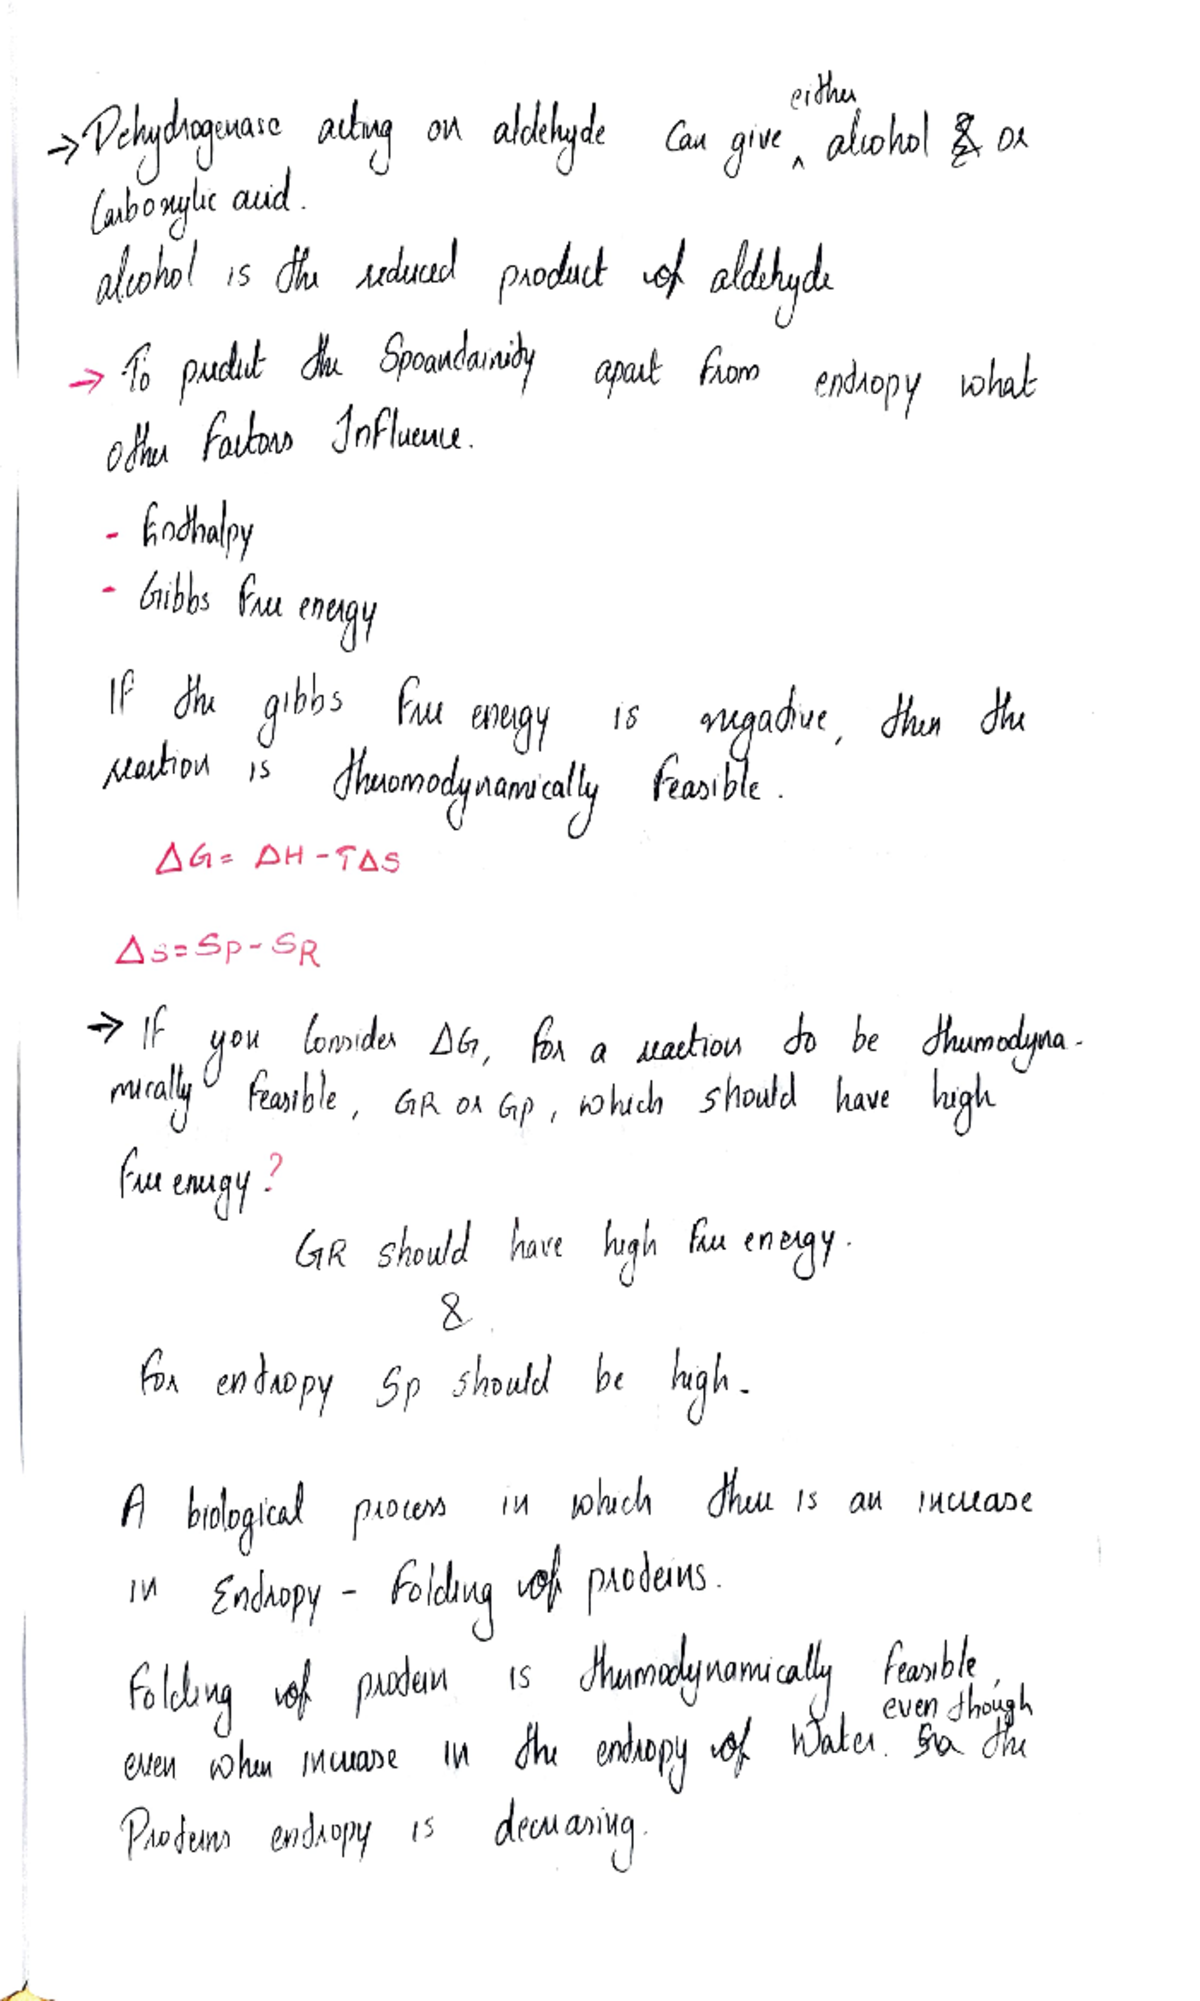 → Dehydrogenase acting on aldehyde can give either alcohol or
Carboxylic acid.
alcohol is the reduced product of aldehyde
→ To predict the Spoandainity apart from entropy what
other factors Influence.
- Enthalpy
- Gibbs Free energy
If the gibbs free energy is negative, then the
reaction is theromodynamically feasible.
ΔG = ΔH - TΔS
ΔS = SP - SR
→ If you Consider ΔG, for a reaction to be thermodyna-
mically feasible, GR or GP, which should have high
free energy?
GR should have high free energy.
&
For entropy SP should be high.
A biological process in which there is an increase
in Entropy - Folding of proteins.
Folding of protein is thermodynamically feasible,
even when increase in the entropy of Water. even though the
Proteins entropy is decreasing.